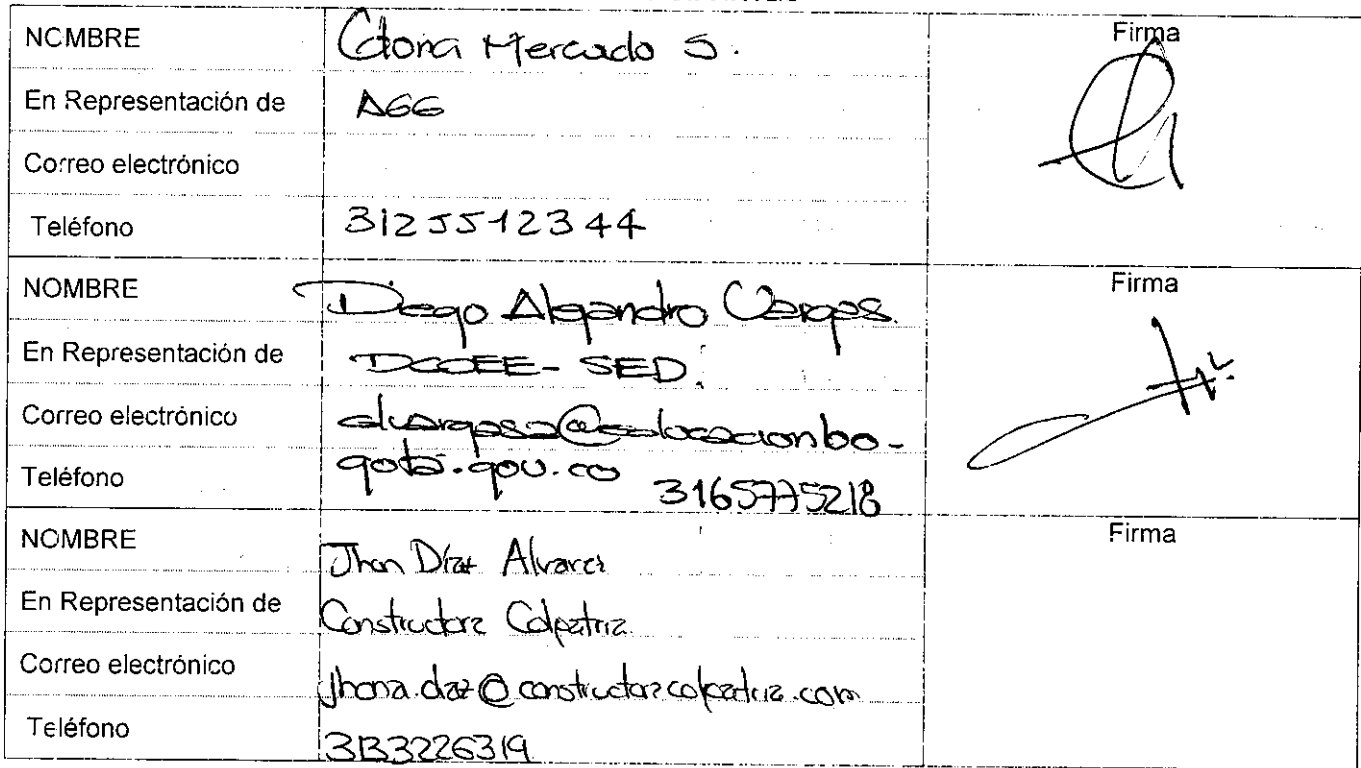 NOMBRE Mercado S. Firma
En Representación de AGG
Correo electrónico
Teléfono 3125512344
NOMBRE Diego Alejandro Vargas. Firma
En Representación de DCCEE- SED.
Correo electrónico
gota.gov.co
Teléfono 3165775218
NOMBRE Jhon Díaz Alvarez Firma
En Representación de Constructora Colpatria
Correo electrónico jhona.diaz@constructoracolpatria.com
Teléfono 3133226319